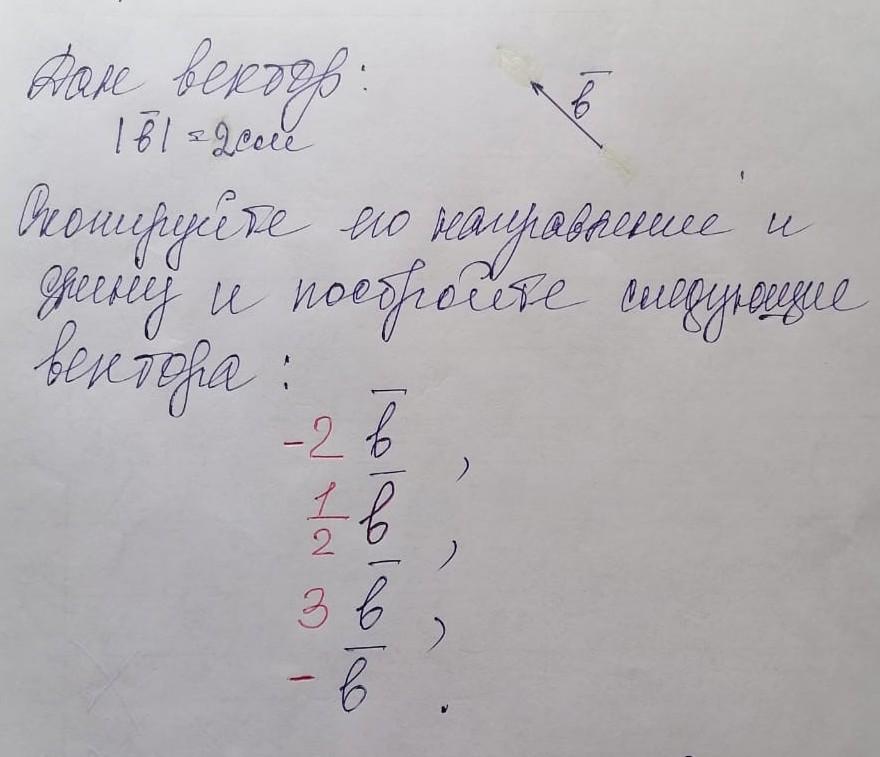 Дан вектор:
b̅
|b̅| = 2см
Скопируйте его направление и
длину и постройте следующие
вектора:
-2 b̅ ,
1/2 b̅ ,
3 b̅ ,
- b̅ .